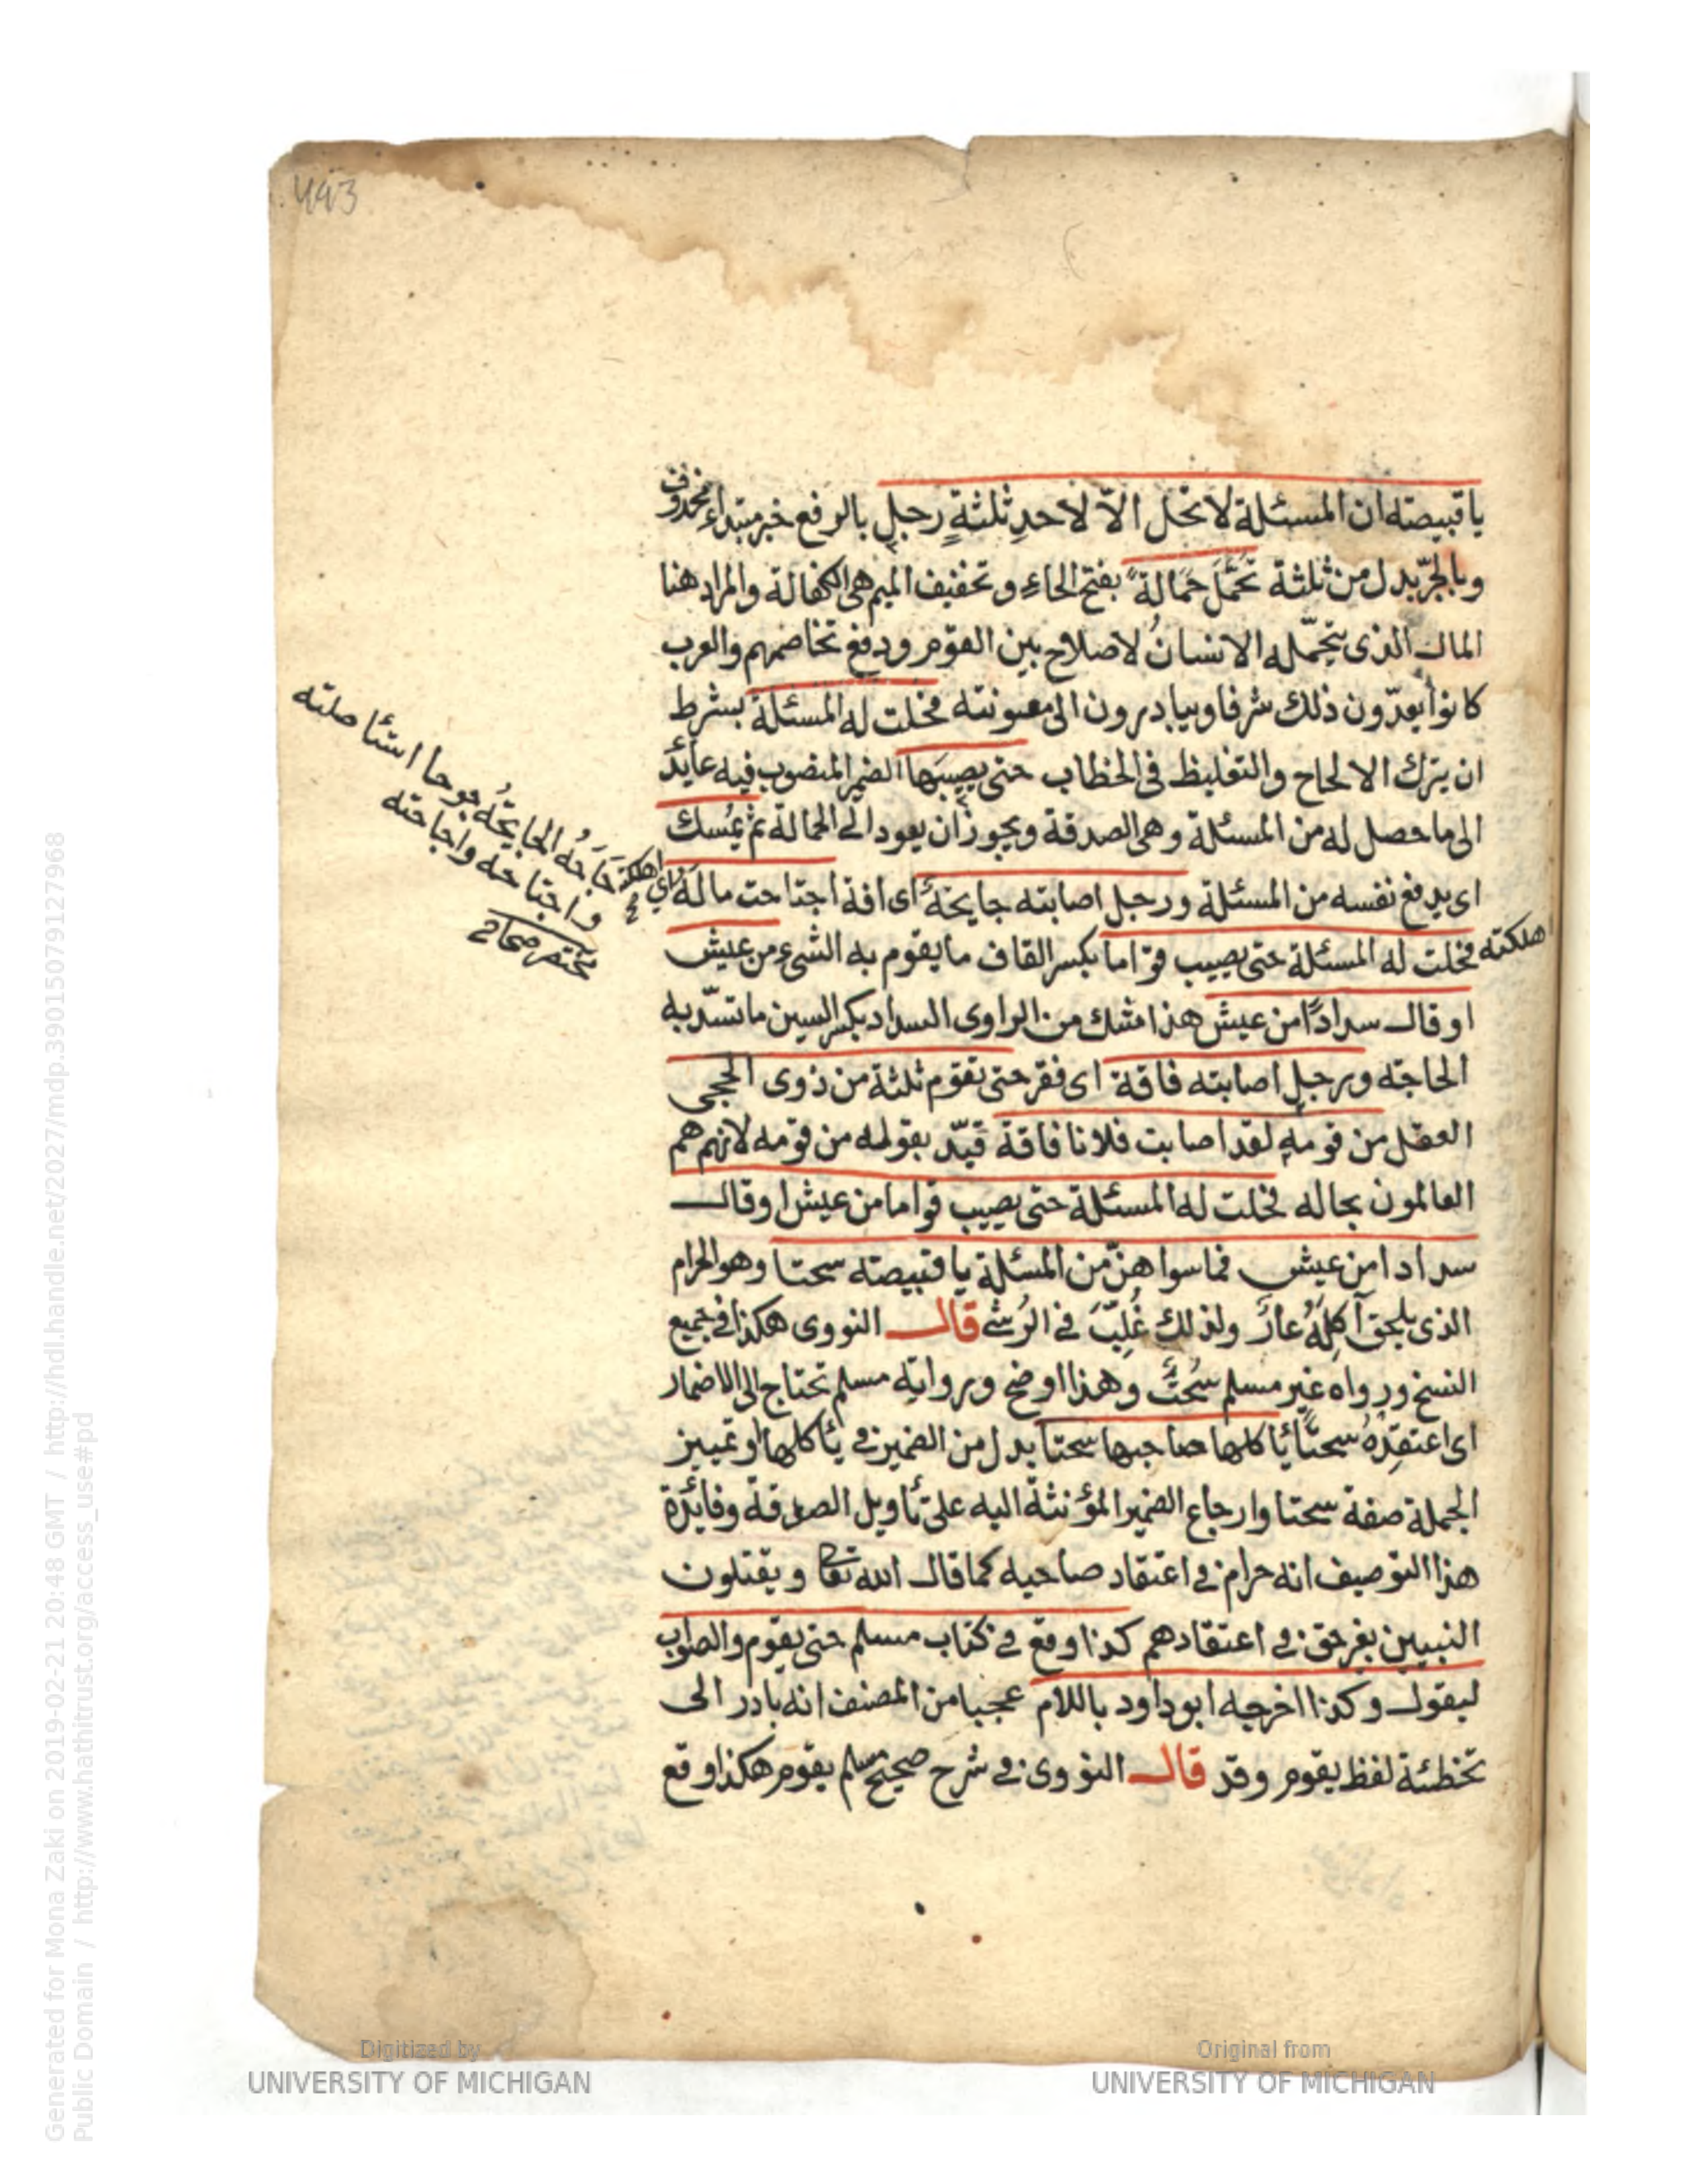 493
يا قبيصته ان المسئلة لا تحل الاّ لاحدِ ثلثةٍ رجلٍ بالرفع خبر مبتداء محذوف
وبالجرّ بدل من ثلثة تَحَمَّلَ حَمَالةً بفتح الحاء وتخفيف الميم هى الكفالة والمراد هنا
المال الذى يتحمّله الانسانُ لاصلاح بين القوم ودفع تخاصمهم والعرب
كانوا يعدّون ذلك شرفا ويبادرون الى معونته فحلت له المسئلة بشرط
ان يترك الالحاح والتغليظ فى الخطاب حتى يصيبَها الضمير المنصوب فيه عايد
الى ما حصل له من المسئلة وهى الصدقة ويجوز ان يعود الى الحمالة ثم يُمسك
اى يدفع نفسه من المسئلة ورجلٍ اصابته جايحةٌ اى افة اجتاحت مالَهُ اى اهلكته
فحلت له المسئلة حتى يصيب قواما بكسر القاف ما يقوم به الشىء من عيش
او قال سدادًا من عيش هذا شك من الراوى السداد بكسر السين ما تسدّ به
الحاجته ورجلٍ اصابته فاقة اى فقر حتى يقوم ثلثة من ذوى الحجى
العقل من قومه لقد اصابت فلانا فاقة قيّد بقوله من قومه لانهم هم
العالمون بحاله فحلت له المسئلة حتى يصيب قواما من عيش او قال
سدادا من عيش فما سواهنّ من المسئلة يا قبيصته سحتا وهو الحرام
الذى يلحق آكِلَهُ عارٌ ولذلك غُلِّبَ فى الرُشى قال النووى هكذا فى جميع
النسخ ورواه غير مسلم سُحتٌ وهذا اوضح ورواية مسلم تحتاج الى الاضمار
اى اعتقِدهُ سحتًا يأكلها صاحبها سحتا بدل من الضمير فى يأكلها او تمييز
الجملة صفة سحتا وارجاع الضمير المؤنثة اليه على تأويل الصدقة وفائدة
هذا التوصيف انه حرام فى اعتقاد صاحبه كما قال الله تعا ويقتلون
النبيين بغير حق فى اعتقادهم كذا وقع فى كتاب مسلم حتى يقوم والصواب
ليقول وكذا اخرجه ابو داود باللام عجبا من المصنف انه بادر الى
تخطئة لفظ يقوم وقد قال النووى فى شرح صحيح مسلم يقوم هكذا وقع
جَاحَهُ الجايحَةُ جوحا استأصلته
واجتاحه واجاحته
مختر صحاح
اهلكته
Generated for Mona Zaki on 2019-02-21 20:48 GMT / http://hdl.handle.net/2027/mdp.39015079127968
Public Domain / http://www.hathitrust.org/access_use#pd
Digitized by
UNIVERSITY OF MICHIGAN
Original from
UNIVERSITY OF MICHIGAN